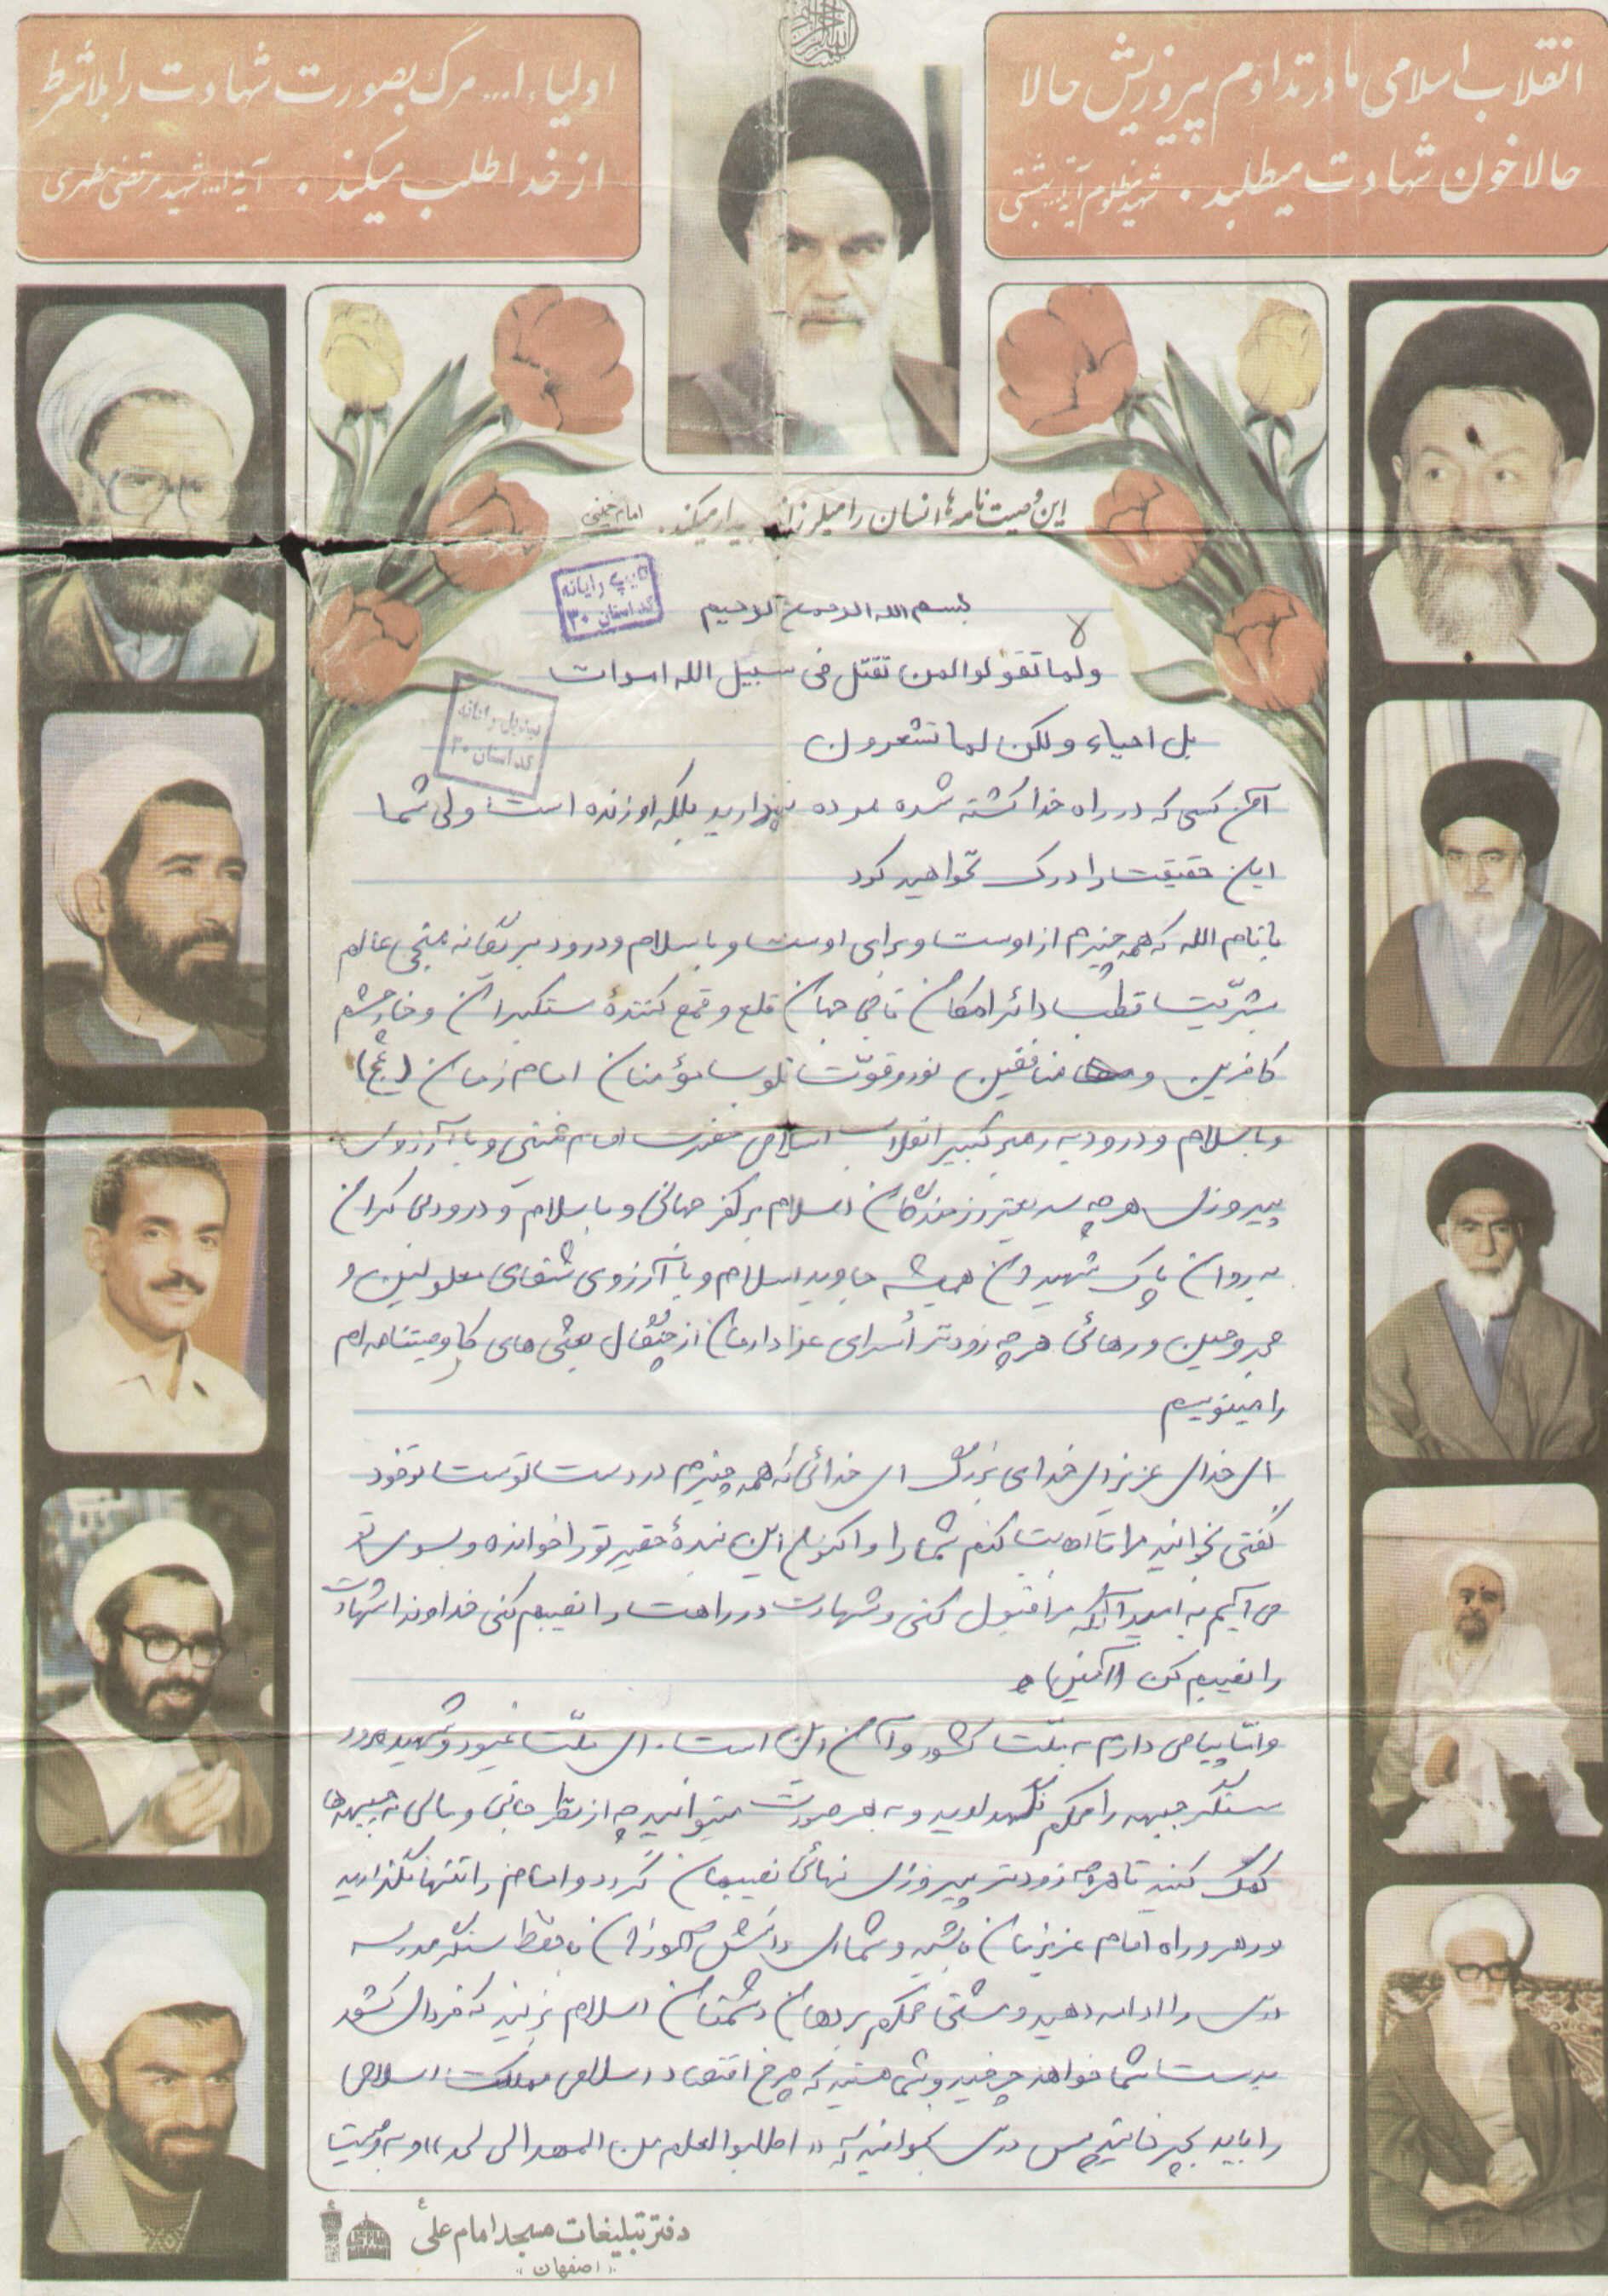 انقلاب اسلامی ما در تداوم پیروزیش حالا
حالا خون شهادت میطلبد . شهید مظلوم آیة ا... بهشتی
اولیاء ا... مرگ بصورت شهادت را بلاشرط
از خدا طلب میکند . آیة ا... شهید مرتضی مطهری
این وصیت نامه ها انسان را میلرزاند بیدار میکند . امام خمینی
تایپ رایانه
کد استان ۳۰
بسم الله الرحمن الرحیم
ولا تقولوا لمن تقتل فی سبیل الله اموات
کد استان ۳۰
بل احیاء ولکن لا تشعرون
آن کسی که در راه خدا کشته شده مرده نپندارید بلکه او زنده است ولی شما
این حقیقت را درک نخواهید کرد
با نام الله که همه چیزم از اوست و برای اوست و با سلام و درود بر یگانه منجی عالم
بشریّت قطب دائر امکان ناجی جهان قلع و قمع کنندهٔ ستکبران و خار چشم
کافرین و منافقین نور و قوّت قلوب مؤمنان امام زمان (عج)
و با سلام و درود به رهبر کبیر انقلاب اسلامی حضرت امام خمینی و با آرزوی
پیروزی هر چه سریعتر رزمندگان اسلام بر کفر جهانی و با سلام و درود بی کران
به روان پاک شهیدان همیشه جاوید اسلام و با آرزوی شفای معلولین و
مجروحین و رهائی هر چه زودتر اسرای عزادارمان از چنگال بعثی های کافر وصیتنامه ام
را مینویسم
ای خدای عزیز ای خدای بزرگ ای خدائی که همه چیزم در دست توست تو خود
گفتی بخوانید مرا تا اجابت کنم شما را و اکنون این بندهٔ حقیر تو را خوانده و بسوی تو
می آیم به امید آنکه مرا قبول کنی و شهادت در راهت را نصیبم کنی خداوندا شهادت
را نصیبم کن ((آمین))
و امّا پیامی دارم به ملّت کشور و آن این است . ای ملّت غیور و شهید پرور
سنگر جبهه را محکم نگهدارید و به هر صورت میتوانید چه از نظر جانی و مالی به جبهه ها
کمک کنید تا هر چه زودتر پیروزی نهائی نصیبمان گردد و امام را تنها نگذارید
و رهرو راه امام عزیزمان باشید و شما ای دانش آموزان با حفظ سنگر مدرسه
درس را ادامه دهید و مشتی محکم بر دهان دشمنان اسلام بزنید که فردای کشور
بدست شما خواهد چرخید و شما هستید که چرخ اقتصاد اسلامی مملکت اسلامی
را باید بچرخانید پس درس بخوانید که «اطلبوا العلم من المهد الی لحد» و به وصیت
دفتر تبلیغات مسجد امام علی ع
«اصفهان»